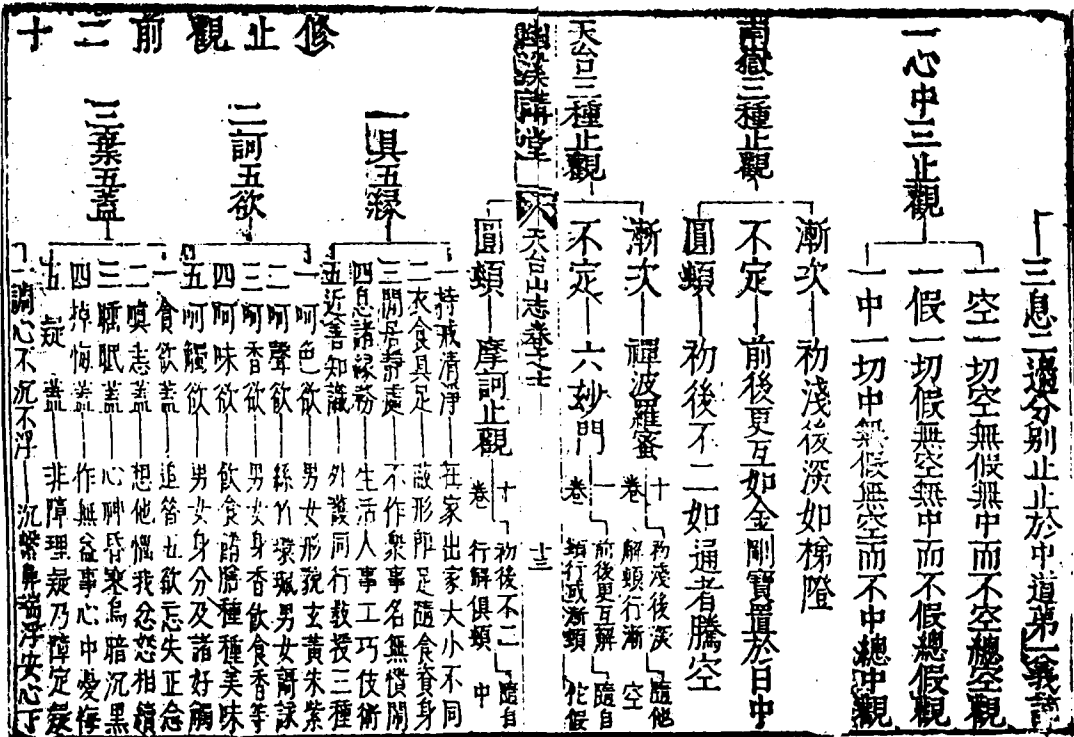 三息二邊分別止止於中道第一義諦
一心中三止觀
一空一切空無假無中而不空總空觀
一假一切假無空無中而不假總假觀
一中一切中無假無空而不中總中觀
南嶽三種止觀
漸次 初淺後深如梯隥
不定 前後更互如金剛寶置於日中
圓頓 初後不二如通者騰空
天台三種止觀
漸次 禪波羅蜜 十卷 初淺後深 解頓行漸 隨他 空
不定 六妙門 一卷 前後更互解 頓行或漸頓 隨自他假
圓頓 摩訶止觀 十卷 初後不二 行解俱頓 隨自 中
幽溪講堂 天台山志卷之 十三
修止觀前二十
一具五緣
一持戒清淨 在家出家大小不同
二衣食具足 蔽形即足隨食資身
三閒居靜處 不作衆事名無憒鬧
四息諸緣務 生活人事工巧伎術
五近善知識 外護同行教授三種
二訶五欲
一呵色欲 男女形貌玄黃朱紫
二呵聲欲 絲竹環珮男女謌詠
三呵香欲 男女身香飲食香等
四呵味欲 飲食諸膳種種美味
五呵觸欲 男女身分及諸好觸
三棄五蓋
一貪欲蓋 追答五欲忘失正念
二嗔恚蓋 想他惱我忿怒相續
三睡眠蓋 心神昏寒烏暗沉黑
四掉悔蓋 作無益事心中憂悔
五疑蓋 非障理疑乃障定疑
一調心不沉不浮 沉繫鼻端浮安心丁